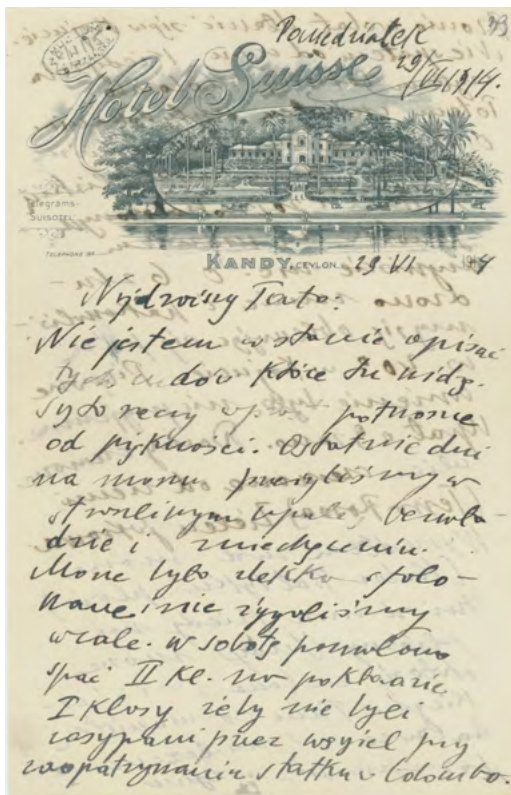 Poniedziałek
29/VI 1914.
Hotel Suisse
Telegrams-
SUISOTEL.
TELEPHONE
KANDY, CEYLON. 29 VI 1914
Najdroższy Tato:
Nie jestem w stanie opisać
tych cudów które tu widzę.
Są to rzeczy wprost potworne
od piękności. Ostatnie dni
na morzu przeżyliśmy w
straszliwym upale, bezwła-
dzie i zniechęceniu.
Morze było lekko sfalo-
wane i nie rzygaliśmy
wcale. W sobotę pozwolono
spać II kl. na pokładzie
I klasy żeby nie byli
zasypani przez węgiel przy
zaopatrywaniu statku w Colombo.